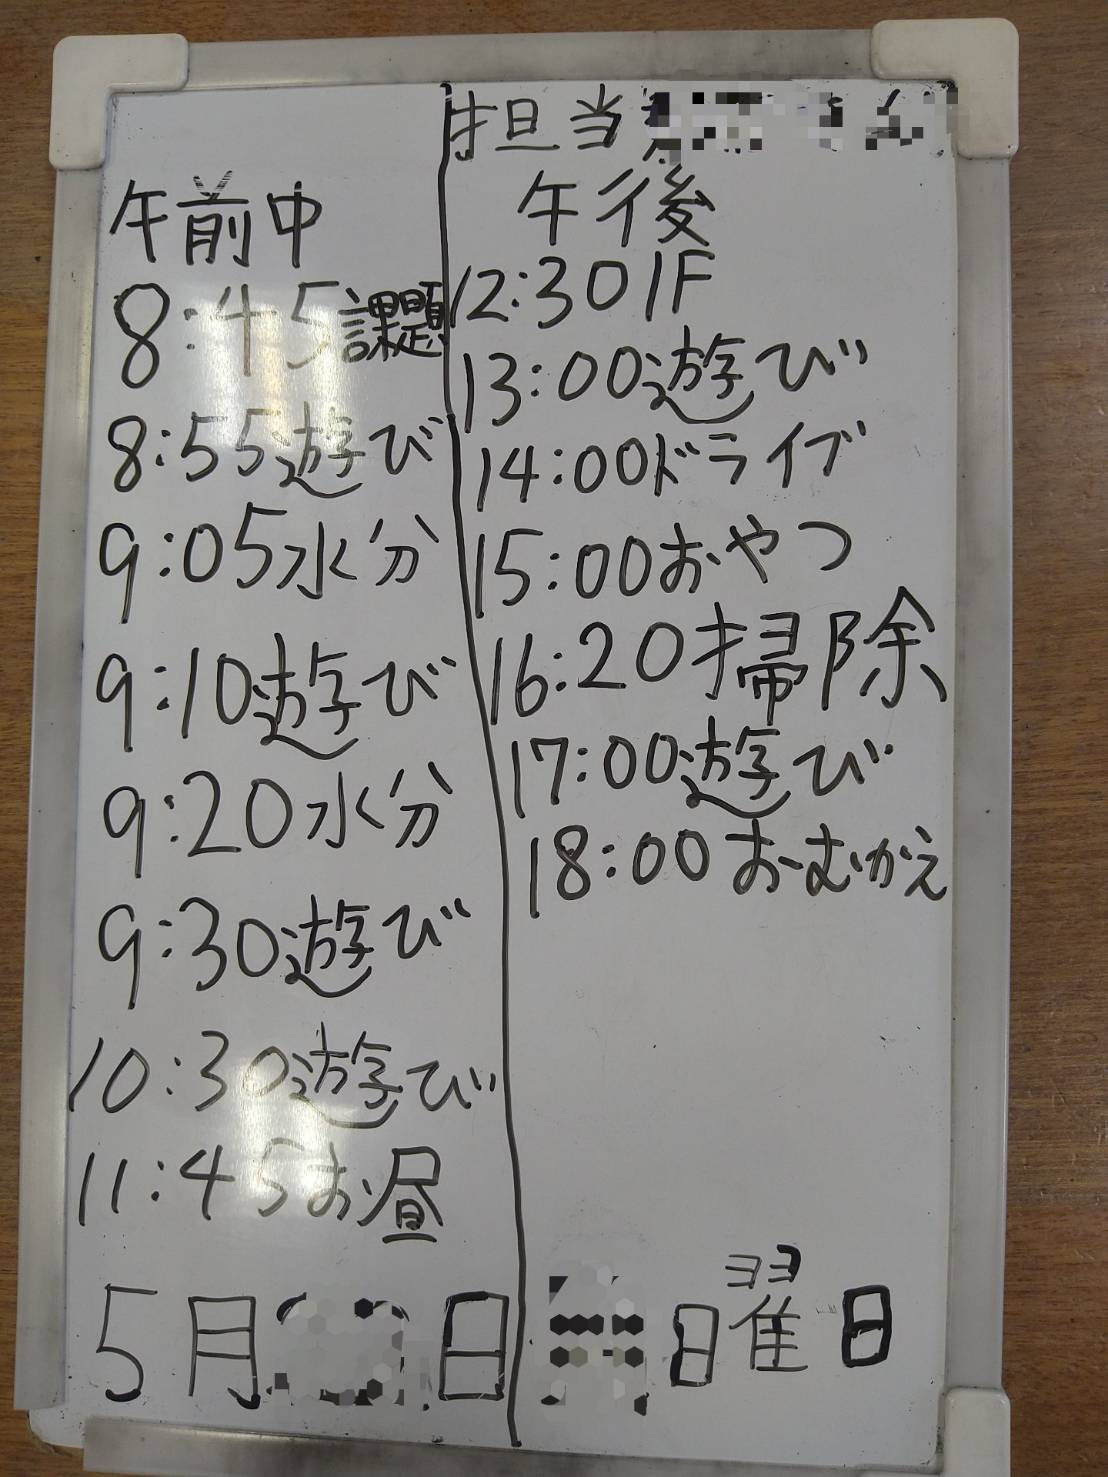 午前中
8:45課題
8:55遊び
9:05水分
9:10遊び
9:20水分
9:30遊び
10:30遊び
11:45お昼
担当
午後
12:30 1F
13:00遊び
14:00ドライブ
15:00おやつ
16:20掃除
17:00遊び
18:00おむかえ
5月 日 曜日